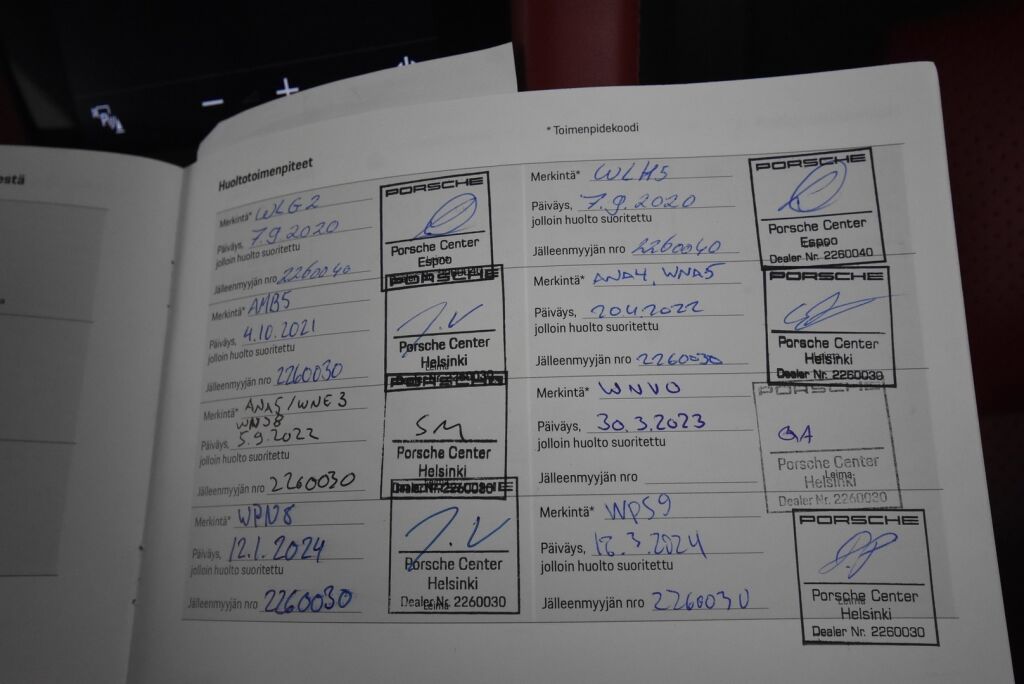 estä
* Toimenpidekoodi
Huoltotoimenpiteet
Merkintä* WLG2
Päiväys, 7.9.2020
jolloin huolto suoritettu
Jälleenmyyjän nro 2260040
PORSCHE
Porsche Center
Espoo
Merkintä* WLH5
Päiväys, 7.9.2020
jolloin huolto suoritettu
Jälleenmyyjän nro 2260040
PORSCHE
Porsche Center
Espoo
Dealer Nr. 2260040
Merkintä* AMB5
Päiväys, 4.10.2021
jolloin huolto suoritettu
Jälleenmyyjän nro 2260030
J.V
Porsche Center
Helsinki
Merkintä* ANA4, WNA5
Päiväys, 20.4.2022
jolloin huolto suoritettu
Jälleenmyyjän nro 2260030
PORSCHE
Porsche Center
Helsinki
Dealer Nr. 2260030
Merkintä* ANA5/WNE3
WNJ8
Päiväys, 5.9.2022
jolloin huolto suoritettu
Jälleenmyyjän nro 2260030
SM
Porsche Center
Helsinki
Dealer Nr. 2260030
Merkintä* WNV0
Päiväys, 30.3.2023
jolloin huolto suoritettu
Jälleenmyyjän nro
PORSCHE
QA
Porsche Center
Leima
Helsinki
Dealer Nr. 2260030
Merkintä* WPN8
Päiväys, 12.1.2024
jolloin huolto suoritettu
Jälleenmyyjän nro 2260030
J.V
Porsche Center
Helsinki
Dealer Nr. 2260030
Leima
Merkintä* WPS9
Päiväys, 18.3.2024
jolloin huolto suoritettu
Jälleenmyyjän nro 2260030
PORSCHE
Porsche Center
Leima
Helsinki
Dealer Nr. 2260030